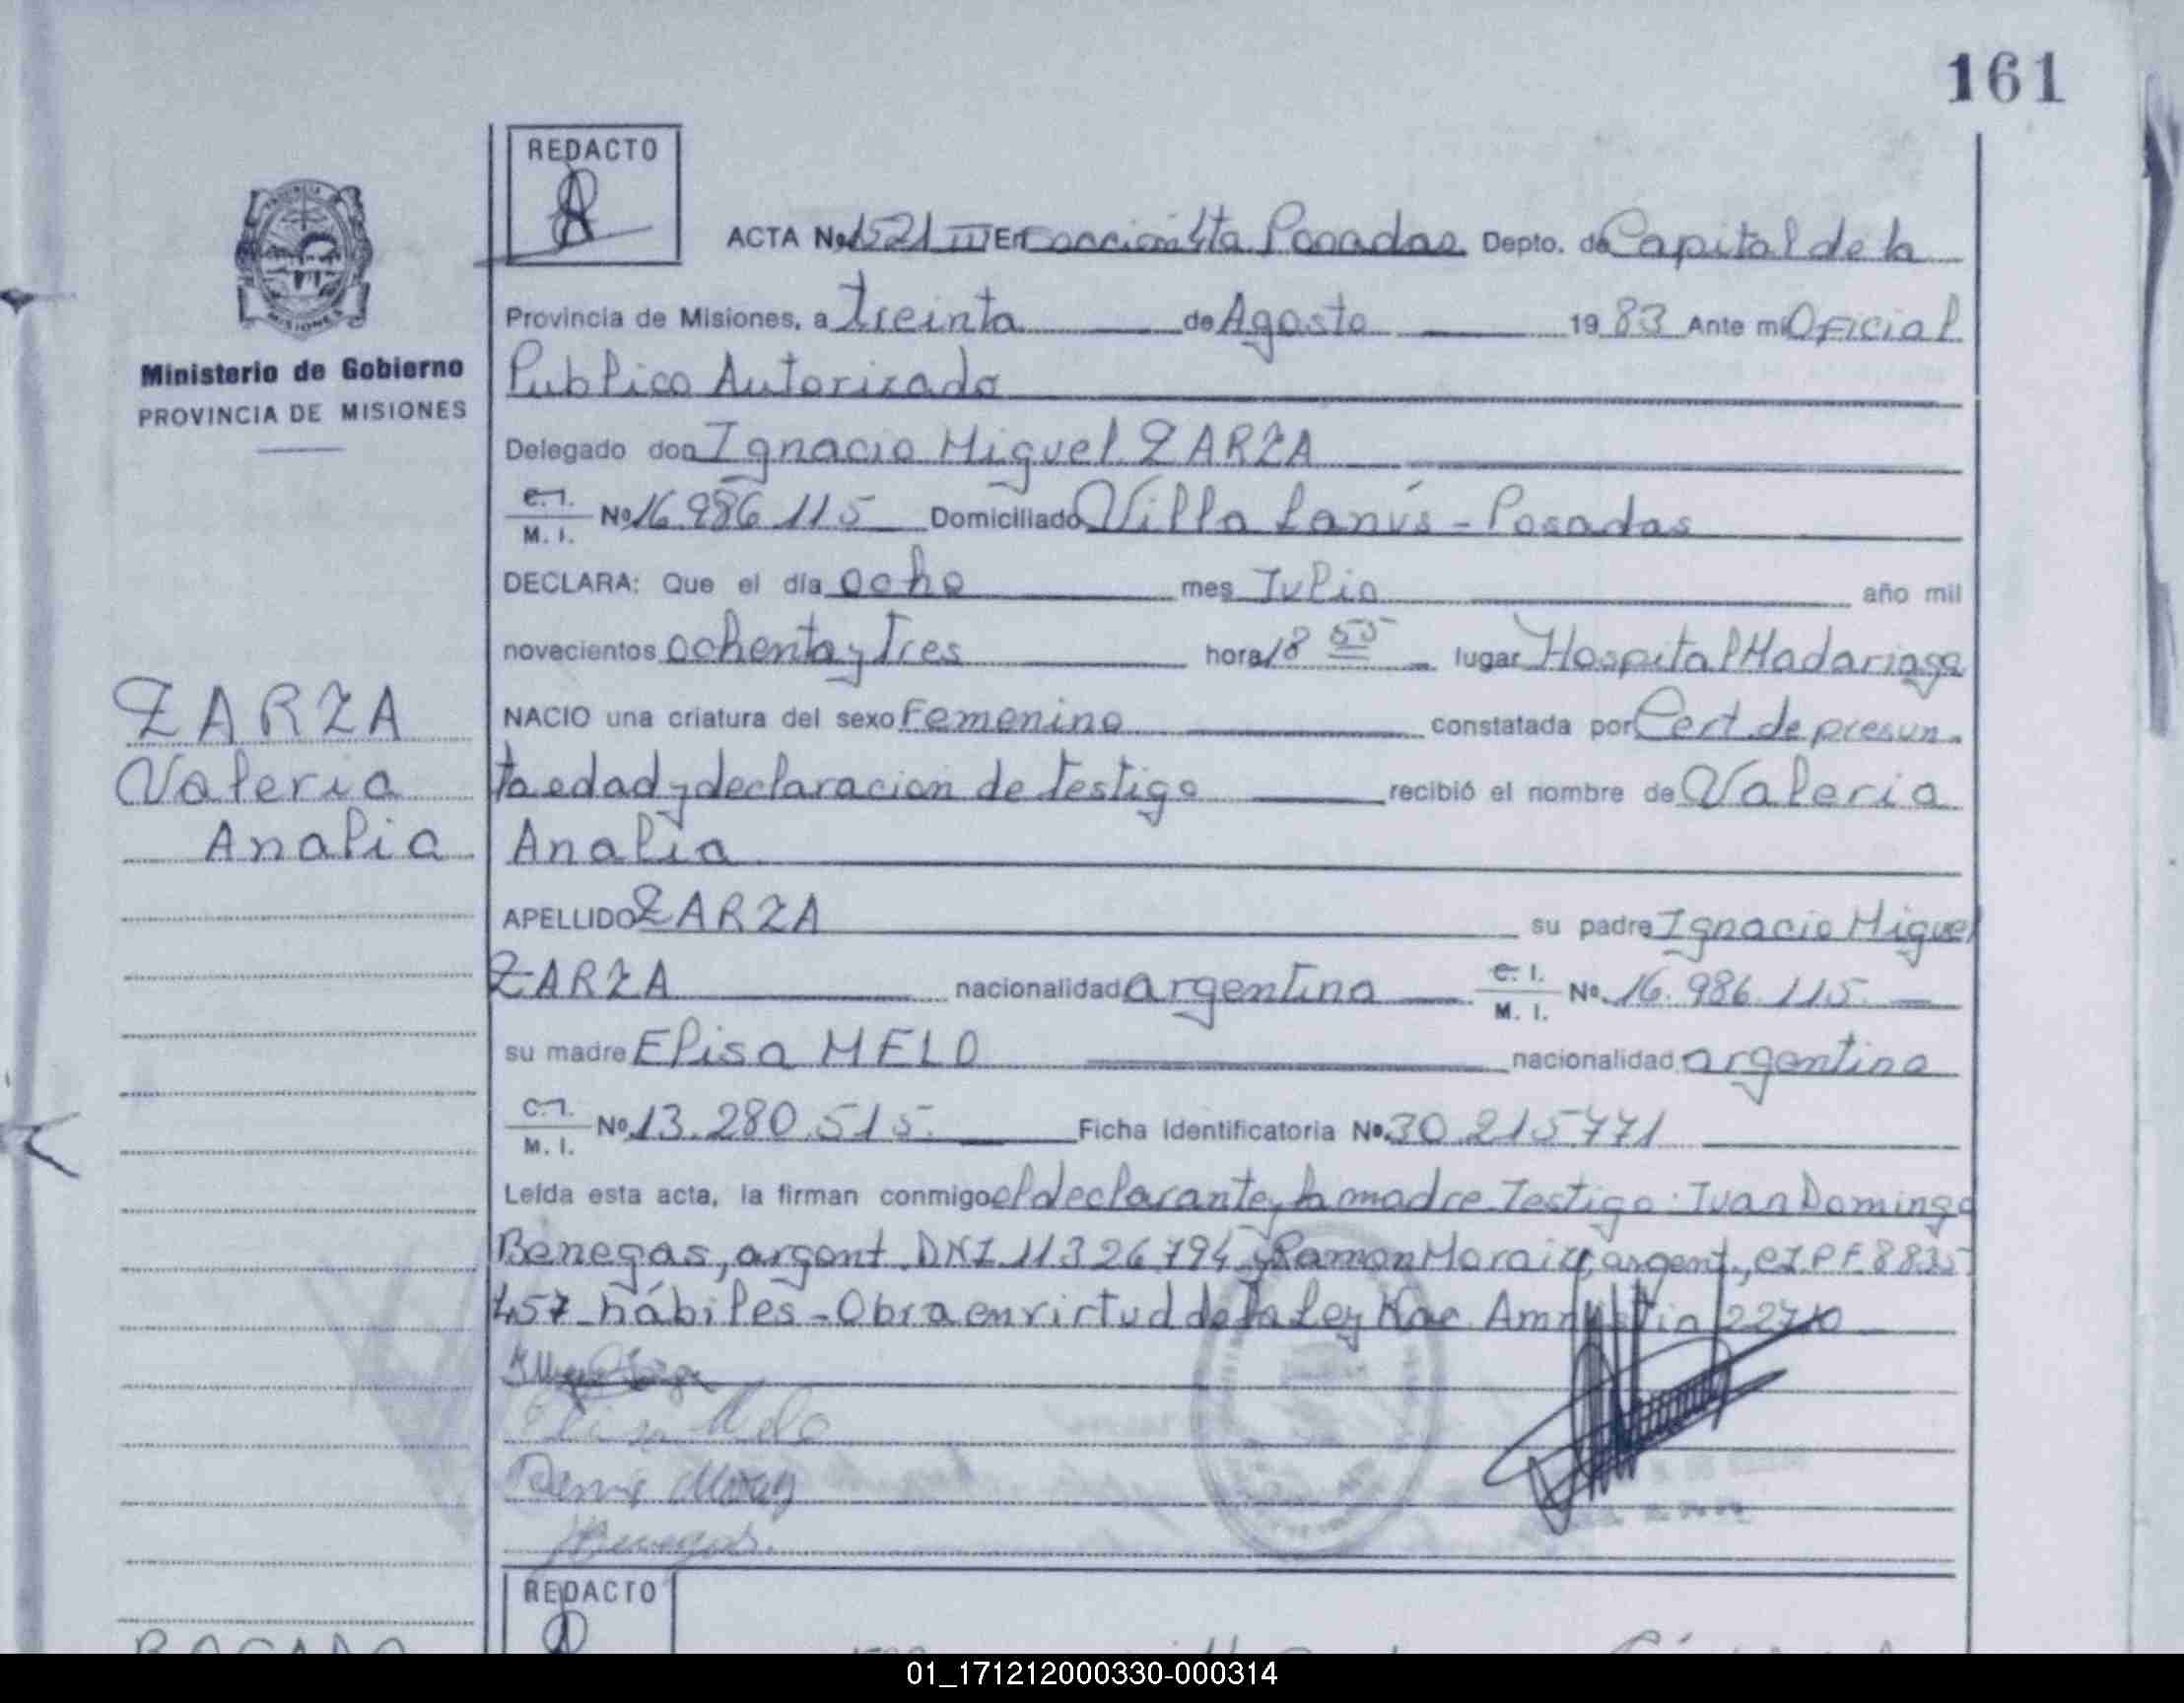 161
REDACTO
ACTA No 1521 III En sección 4ta Posadas Depto. de Capital de la
Provincia de Misiones, a treinta de Agosto 19 83 Ante mi Oficial
Publico Autorizado
Ministerio de Gobierno
PROVINCIA DE MISIONES
Delegado don Ignacio Miguel ZARZA
C.I. M. I. No 16.986.115 Domiciliado Villa Lanús - Posadas
DECLARA: Que el día ocho mes Julio año mil
novecientos ochenta y tres hora 18 55 lugar Hospital Madariaga
ZARZA
Valeria
Analia
NACIO una criatura del sexo Femenino constatada por Cert. de presun
ta edad y declaracion de testigo recibió el nombre de Valeria
Analia
APELLIDO ZARZA su padre Ignacio Miguel
ZARZA nacionalidad argentina C. I. M. I. No. 16.986.115.
su madre Elisa MELO nacionalidad argentina
C.I. M. I. No 13.280.515. Ficha Identificatoria No. 30.215771
Leída esta acta, la firman conmigo el declarante y la madre Testigo: Juan Domingo
Benegas, argent. DNI 11326794 y Ramon Moraiz, argent., CI PF 8835
457 hábiles - Obra en virtud de la Ley Nac. Amnistia 22710
Elisa Melo
Benegas.
REDACTO
01_171212000330-000314